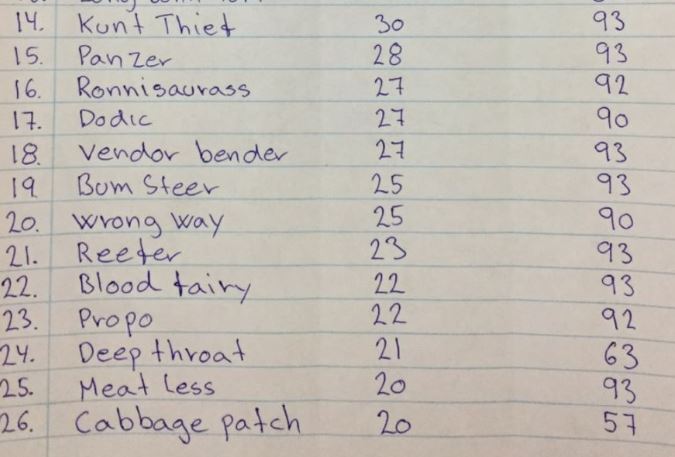 14. Kunt Thief 30 93
15. Panzer 28 93
16. Ronnisaurass 27 92
17. Dodic 27 90
18. Vendor bender 27 93
19 Bum Steer 25 93
20. Wrong way 25 90
21. Reefer 23 93
22. Blood fairy 22 93
23. Propo 22 92
24. Deep throat 21 63
25. Meat Less 20 93
26. Cabbage patch 20 57